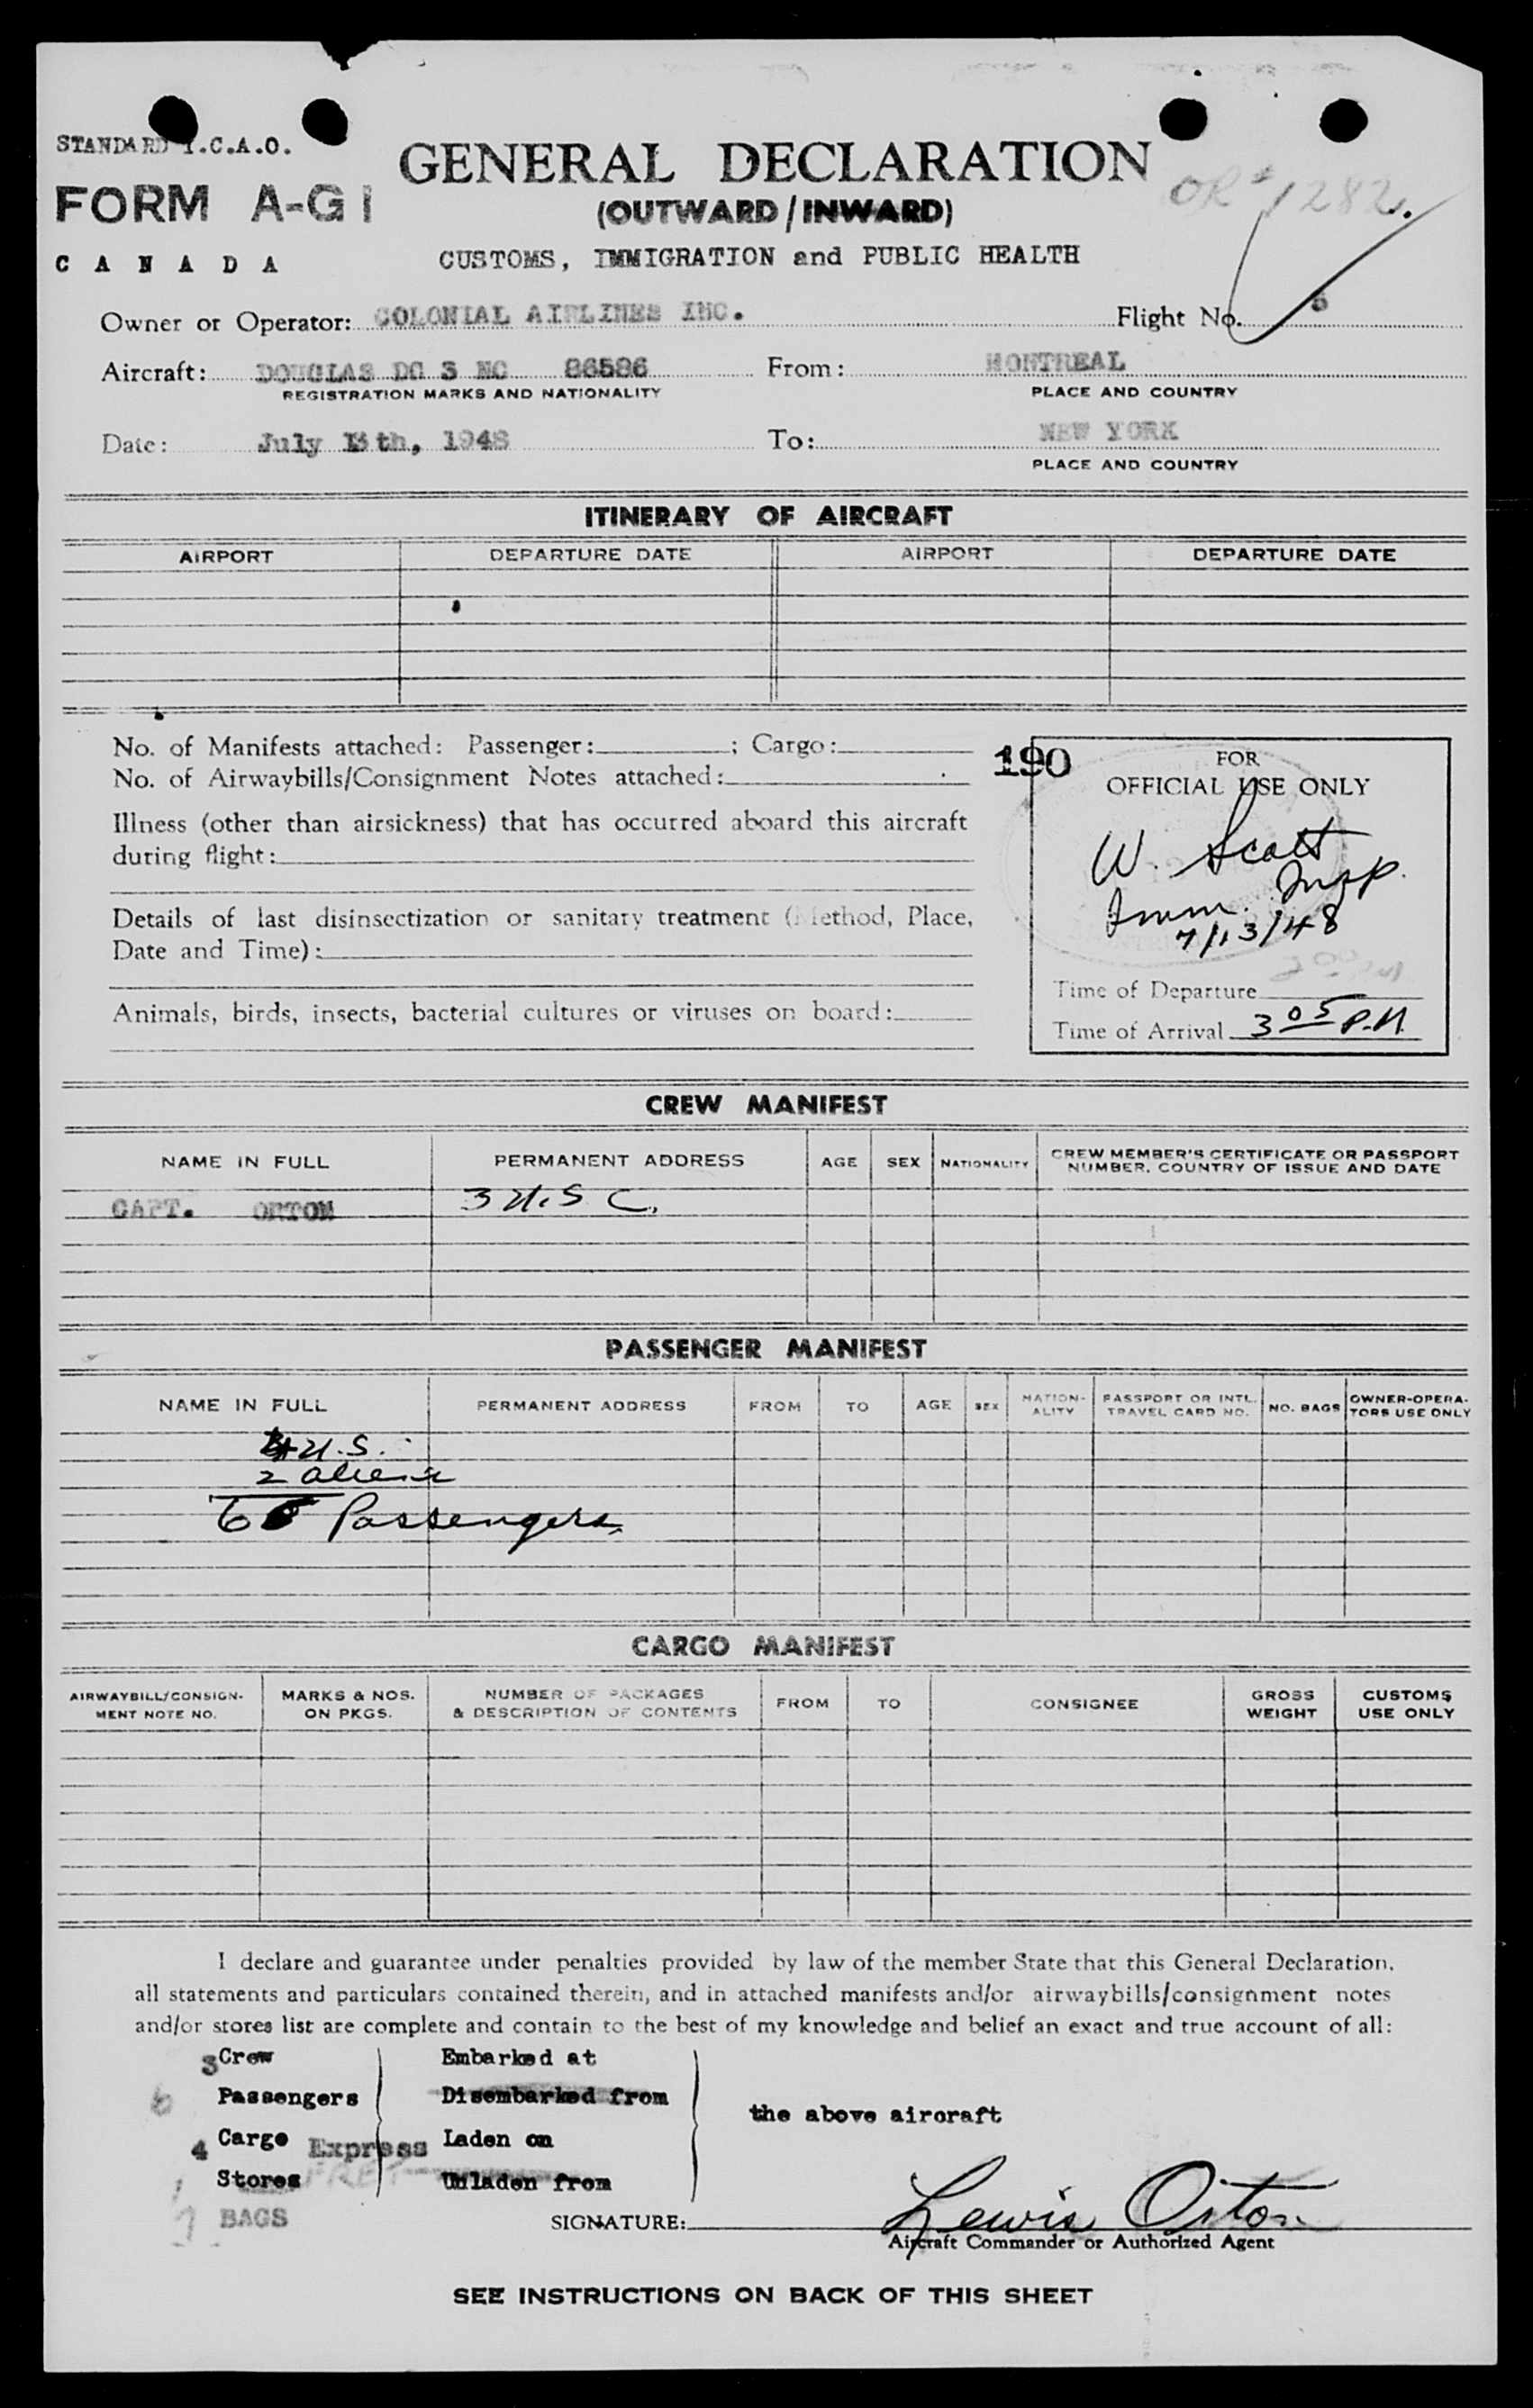 STANDARD I.C.A.O.
FORM A-G1
CANADA
GENERAL DECLARATION
(OUTWARD/INWARD)
CUSTOMS, IMMIGRATION and PUBLIC HEALTH
OR #1282.
Owner or Operator: COLONIAL AIRLINES INC. Flight No. 6
Aircraft: DOUGLAS DC 3 NC 86586 From: MONTREAL
REGISTRATION MARKS AND NATIONALITY PLACE AND COUNTRY
Date: July 13th, 1948 To: NEW YORK
PLACE AND COUNTRY
ITINERARY OF AIRCRAFT
AIRPORT DEPARTURE DATE AIRPORT DEPARTURE DATE
No. of Manifests attached: Passenger: ; Cargo:
No. of Airwaybills/Consignment Notes attached:
Illness (other than airsickness) that has occurred aboard this aircraft
during flight:
Details of last disinsectization or sanitary treatment (Method, Place,
Date and Time):
Animals, birds, insects, bacterial cultures or viruses on board:
190
FOR
OFFICIAL USE ONLY
W. Scott
Imm. Insp.
7/13/48
Time of Departure
Time of Arrival 3 05 P.M.
CREW MANIFEST
NAME IN FULL PERMANENT ADDRESS AGE SEX NATIONALITY CREW MEMBER'S CERTIFICATE OR PASSPORT
NUMBER, COUNTRY OF ISSUE AND DATE
CAPT. ORTON 3 U.S C.
PASSENGER MANIFEST
NAME IN FULL PERMANENT ADDRESS FROM TO AGE SEX NATION-
ALITY PASSPORT OR INTL.
TRAVEL CARD NO. NO. BAGS OWNER-OPERA-
TORS USE ONLY
4 U.S.
2 aliens
6 Passengers
CARGO MANIFEST
AIRWAYBILL/CONSIGN-
MENT NOTE NO. MARKS & NOS.
ON PKGS. NUMBER OF PACKAGES
& DESCRIPTION OF CONTENTS FROM TO CONSIGNEE GROSS
WEIGHT CUSTOMS
USE ONLY
I declare and guarantee under penalties provided by law of the member State that this General Declaration,
all statements and particulars contained therein, and in attached manifests and/or airwaybills/consignment notes
and/or stores list are complete and contain to the best of my knowledge and belief an exact and true account of all:
3 Crew Embarked at
6 Passengers Disembarked from
the above aircraft
4 Cargo Express Laden on
Stores Unladen from
7 BAGS
SIGNATURE: Lewis Orton
Aircraft Commander or Authorized Agent
SEE INSTRUCTIONS ON BACK OF THIS SHEET